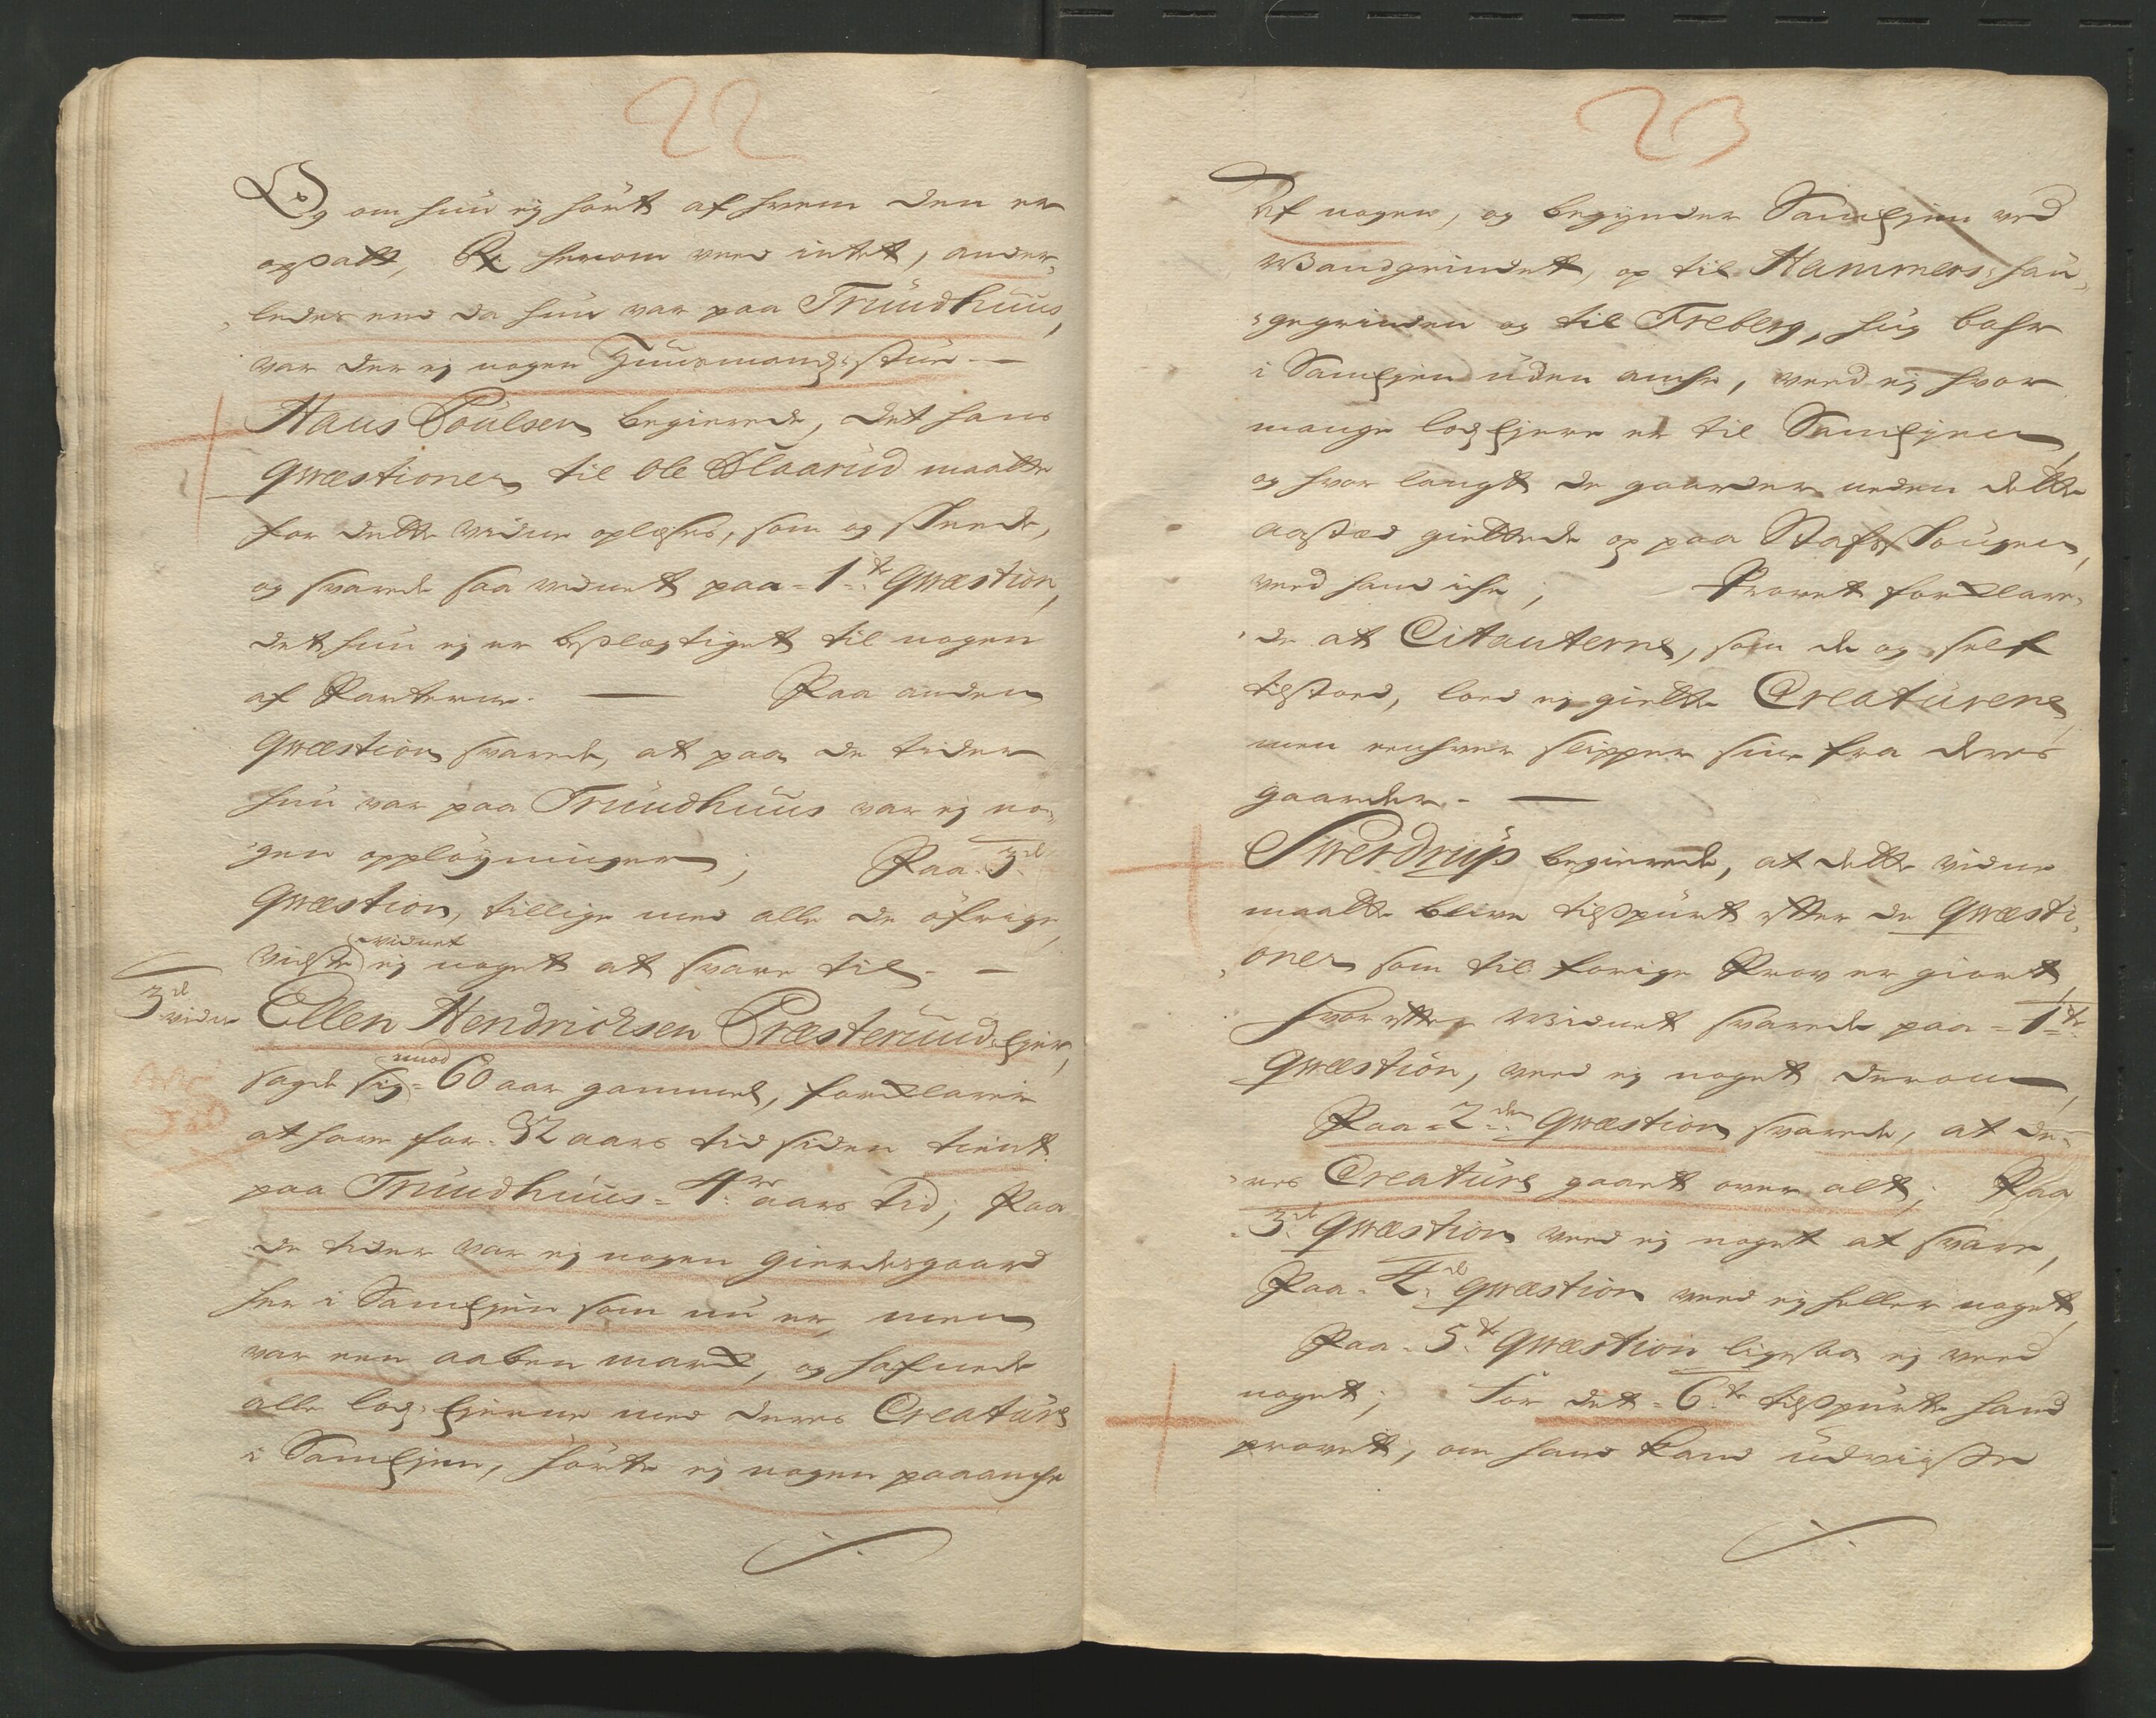 22
Og om hun ej hört af hvem den er
opsatt, Rx herom veed intet, ander,
,ledes end da hun var paa Truudhuus,
var der ej nogen Huusmands stue —
Hans Poulsen begierede, det hans
qwæstioner til Ole Blaarud maatte
for dette vidne oplæses, som og skeede,
og svarede saa vidnet paa = 1te qwæstion,
det hun ej er beslægtiget til nogen
af Parterne. — Paa anden
qwæstion svarede, at paa de tider
hun var paa Truudhuus var ej no,
,gen opplöyninger, Paa 3de
qwæstion, tillige med alle de öfrige,
vidnet
viste ej noget at svare til. —
3de vidne Ellen Hendrichsen Præsteruud ejer,
mod
sagde sig = 60 aar gammel, forklarer
at have for 32 aars tid siden tient
paa Truudhuus = 4re aars tid; Paa
de tider var ej nogen gierdesgaard
her i Samejen som nu er, men
var een aaben mark, og hafnede
alle lodejerne med deres Creature
i Samejen, hörte ej nogen paaanche
23
Af nogen, og begynder Samejen ved
Vandgrindet, op til Hammers hau,
,gegrinden og til Freberg, hug bahr
i Samejen uden anche, veed ej hvor
mange lodejere er til Samejen,
og hvor langt de gaarder neden dette
aasted giettede op paa Stafsskougen,
veed hand iche; Provet forklare,
,de at Citanterne, som de og self
tilstoed, lod ej giette Creaturene,
men eenhver slipper sine fra deres
gaarder. —
Swerdrup begierede, at dette vidne
maatte blive tilspurt efter de qwæsti,
,oner som til forige Prov er giort,
Hvorefter Vidnet svarede paa = 1te
qwæstion, veed ej noget derom,
Paa = 2den qwæstion svarede, at de,
,res Creature gaaet over alt; Paa
3de qwæstion veed ej noget at svare,
Paa 4de qwæstion veed ej heller noget,
Paa 5te qwæstion ligesaa ej veed
noget; For det = 6te tilspurte hand
provet, om hand kand udviise